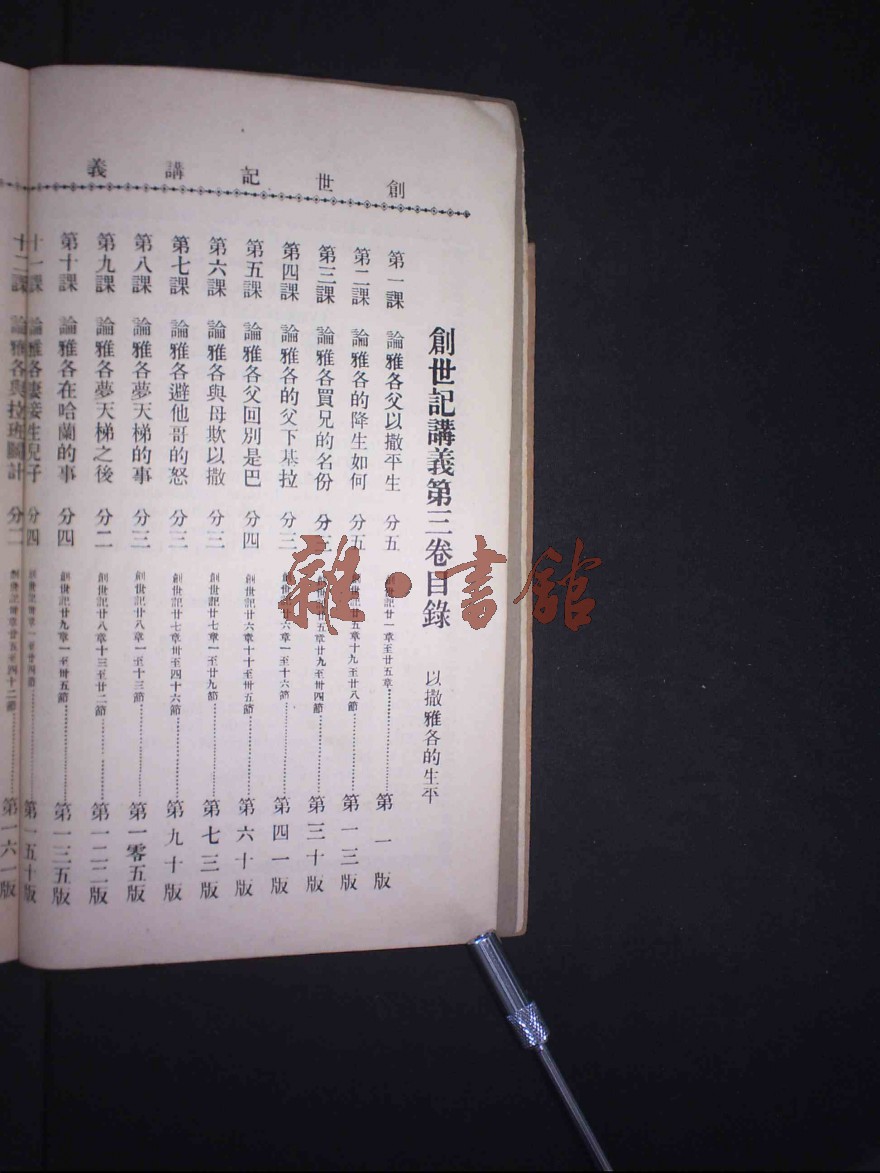 創世記講義
創世記講義第三卷目錄 以撒雅各的生平
第一課 論雅各父以撒平生 分五 創世記廿一章至廿五章 第一版
第二課 論雅各的降生如何 分五 創世記廿五章十九至廿八節 第一三版
第三課 論雅各買兄的名份 分三 創世記廿五章廿九至卅四節 第三十版
第四課 論雅各的父下基拉 分三 創世記廿六章一至十六節 第四一版
第五課 論雅各父回別是巴 分四 創世記廿六章十七至卅五節 第六十版
第六課 論雅各與母欺以撒 分三 創世記廿七章一至廿九節 第七三版
第七課 論雅各避他哥的怒 分三 創世記廿七章卅至四十六節 第九十版
第八課 論雅各夢天梯的事 分三 創世記廿八章一至十三節 第一零五版
第九課 論雅各夢天梯之後 分二 創世記廿八章十三至廿二節 第一二二版
第十課 論雅各在哈蘭的事 分四 創世記廿九章一至卅五節 第一三五版
十一課 論雅各妻接生兒子 分四 創世記卅章一至廿四節 第一五十版
十二課 論雅各與拉班鬭計 分二 創世記卅章廿五至四十二節 第一六一版
雜·書館